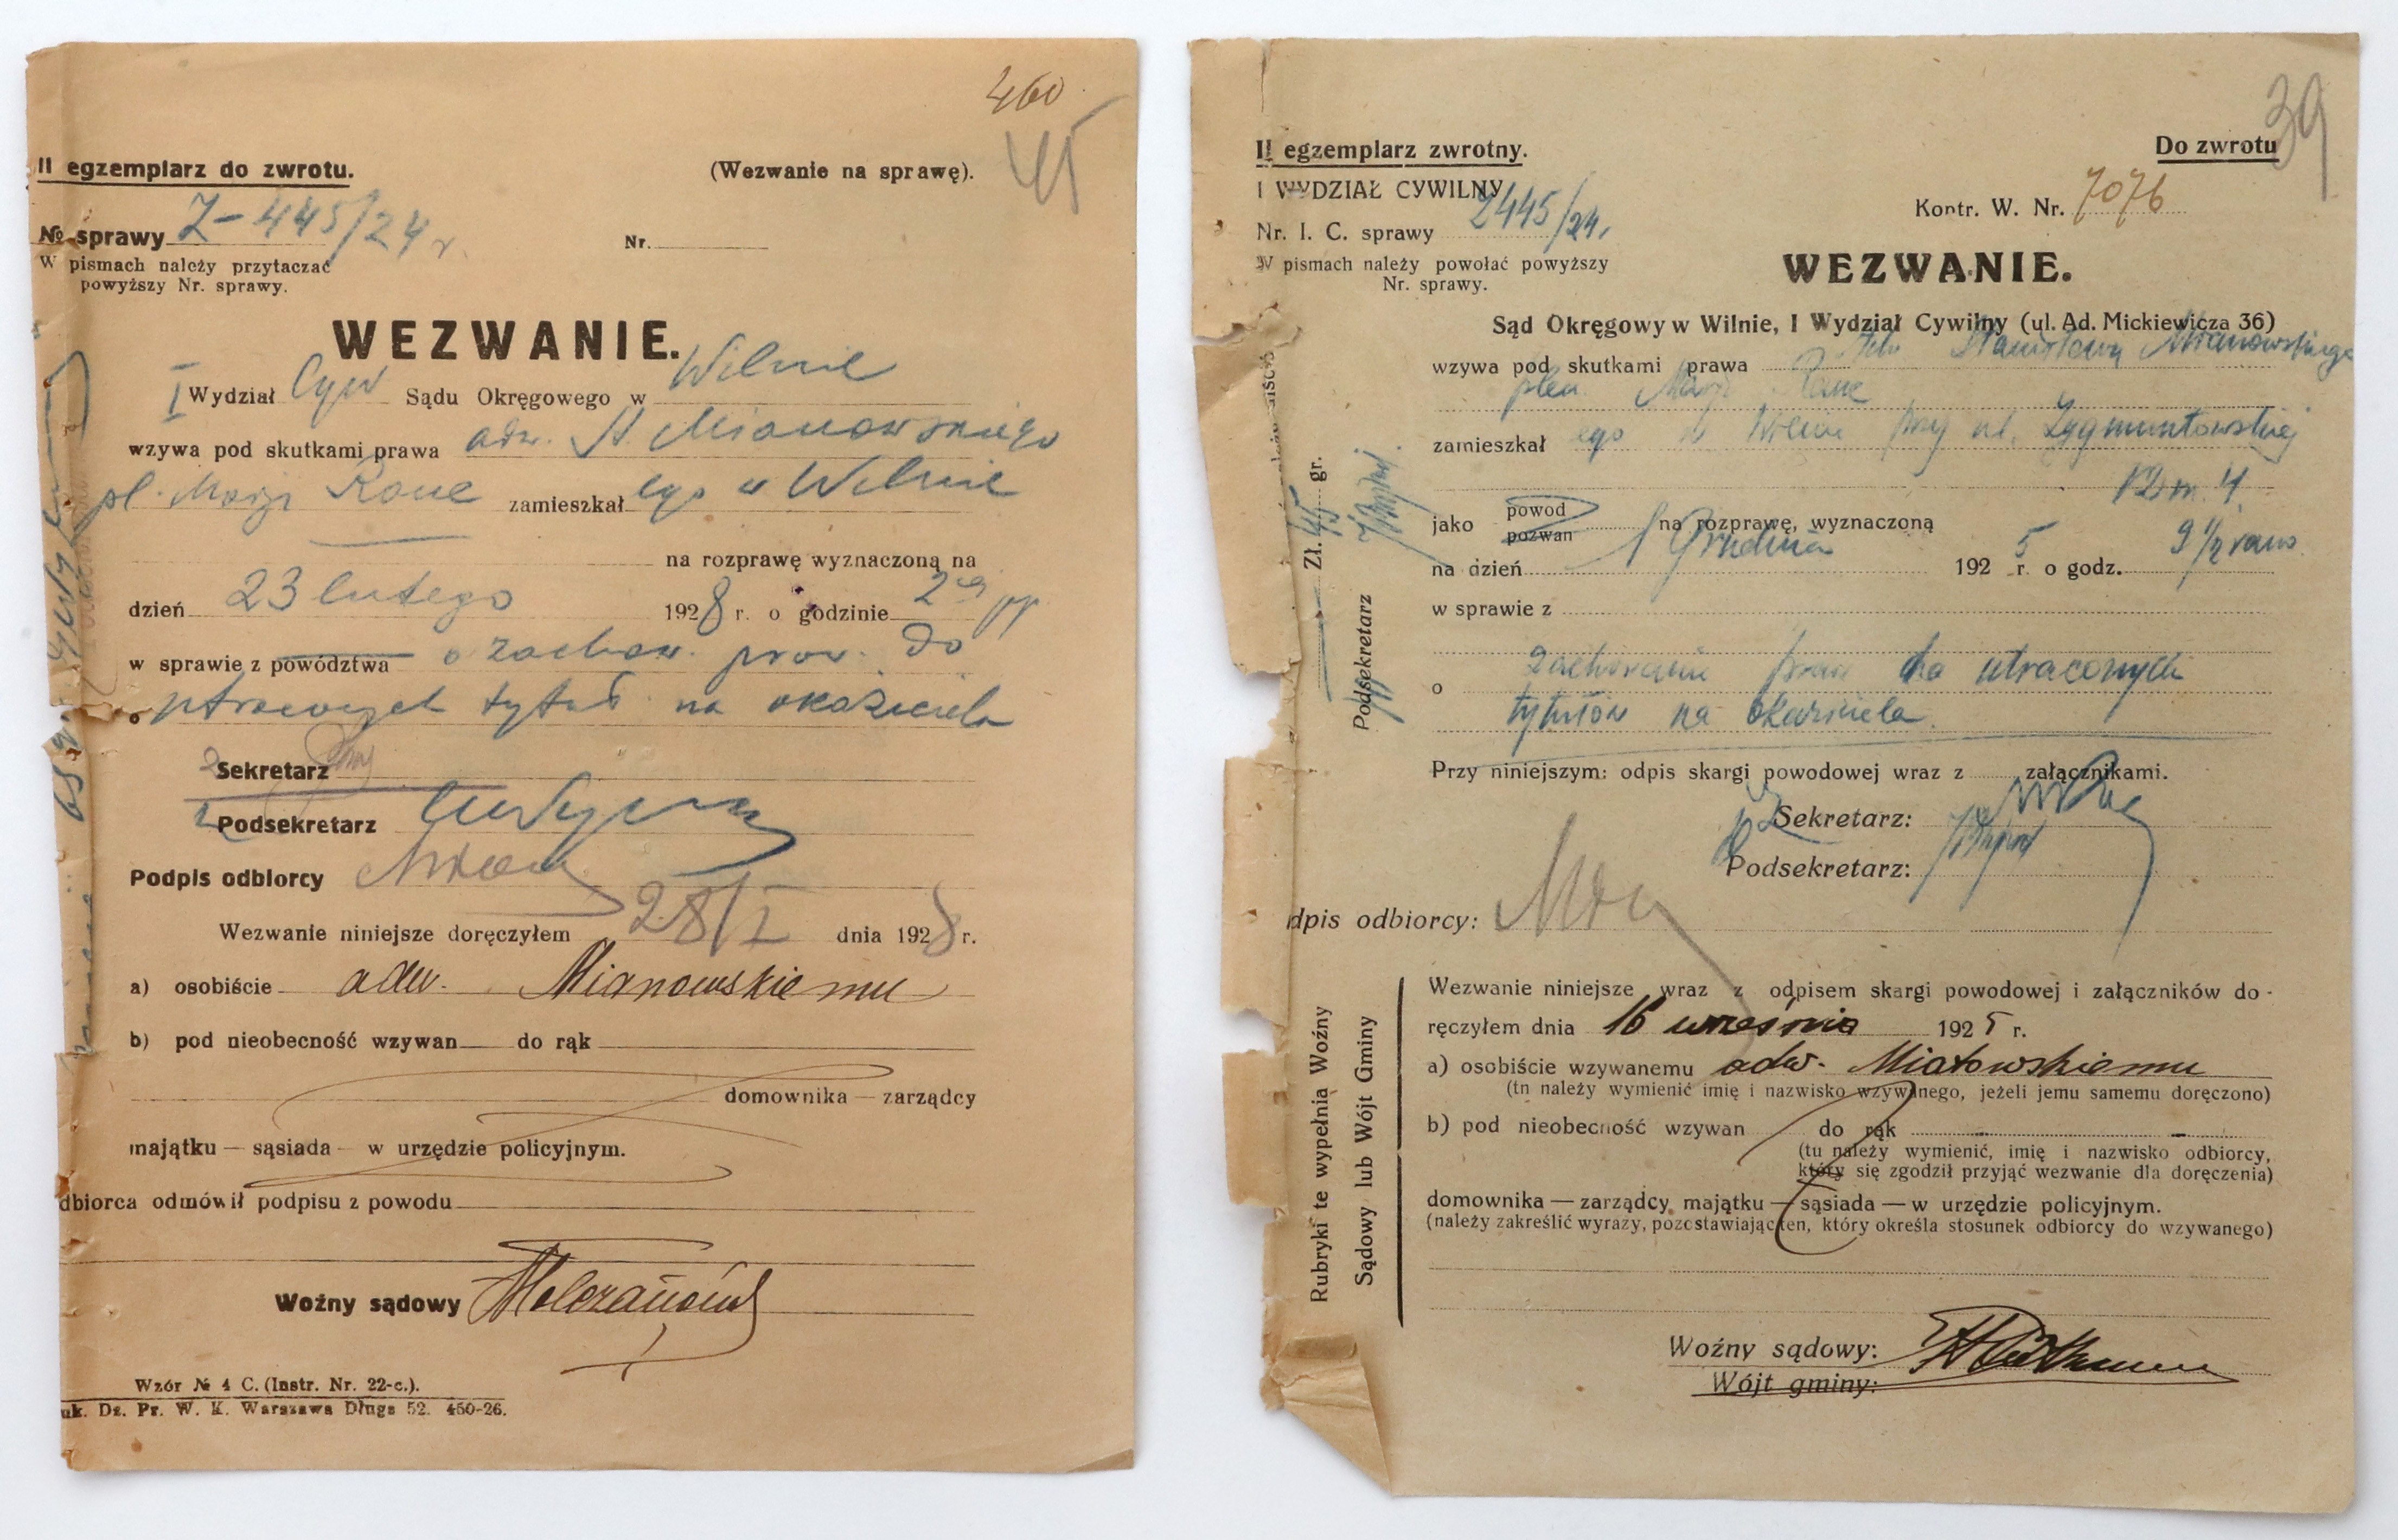 460
45
II egzemplarz do zwrotu.
(Wezwanie na sprawę).
№ sprawy Z-445/24 r.
Nr.
W pismach należy przytaczać
powyższy Nr. sprawy.
WEZWANIE.
I Wydział Cyw Sądu Okręgowego w Wilnie
wzywa pod skutkami prawa adw. St. Mianowskiego
pl. Marji Kone zamieszkał ego w Wilnie
na rozprawę wyznaczoną na
dzień 23 lutego 1928 r. o godzinie 2
w sprawie z powództwa o zachow. praw. do
o utraconych tytuł. na okaziciela
Sekretarz
Podsekretarz
Podpis odbiorcy
Wezwanie niniejsze doręczyłem 28/I dnia 1928 r.
a) osobiście adw. Mianowskiemu
b) pod nieobecność wzywan do rąk
domownika — zarządcy
majątku — sąsiada — w urzędzie policyjnym.
dbiorca odmówił podpisu z powodu
Woźny sądowy
Wzór № 4 C. (Instr. Nr. 22-c.).
uk. Dz. Pr. W. K. Warszawa Długa 52. 450-26.
39
II egzemplarz zwrotny.
Do zwrotu
I WYDZIAŁ CYWILNY
Kontr. W. Nr. 7076
Nr. I. C. sprawy Z445/24.
W pismach należy powołać powyższy
Nr. sprawy.
WEZWANIE.
Sąd Okręgowy w Wilnie, I Wydział Cywilny (ul. Ad. Mickiewicza 36)
wzywa pod skutkami prawa Stanisława Mianowskiego
płen. Marji Kone
zamieszkał ego w Wilnie przy ul. Zygmuntowskiej
12 m. 4
jako powod
pozwan
na rozprawę, wyznaczoną
na dzień 1 Grudnia 1925 r. o godz. 9 1/2 rano
w sprawie z
o zachowanie praw do utraconych
tytułów na okaziciela
Przy niniejszym: odpis skargi powodowej wraz z załącznikami.
Sekretarz:
Podsekretarz:
dpis odbiorcy:
Zł. 45 gr.
Podsekretarz
Rubryki te wypełnia Woźny
Sądowy lub Wójt Gminy
Wezwanie niniejsze wraz z odpisem skargi powodowej i załączników do-
ręczyłem dnia 16 września 1925 r.
a) osobiście wzywanemu adw. Miatowskiemu
(tn należy wymienić imię i nazwisko wzywanego, jeżeli jemu samemu doręczono)
b) pod nieobecność wzywan do rąk
(tu należy wymienić, imię i nazwisko odbiorcy,
który się zgodził przyjąć wezwanie dla doręczenia)
domownika — zarządcy majątku — sąsiada — w urzędzie policyjnym.
(należy zakreślić wyrazy, pozostawiając ten, który określa stosunek odbiorcy do wzywanego)
Woźny sądowy:
Wójt gminy: